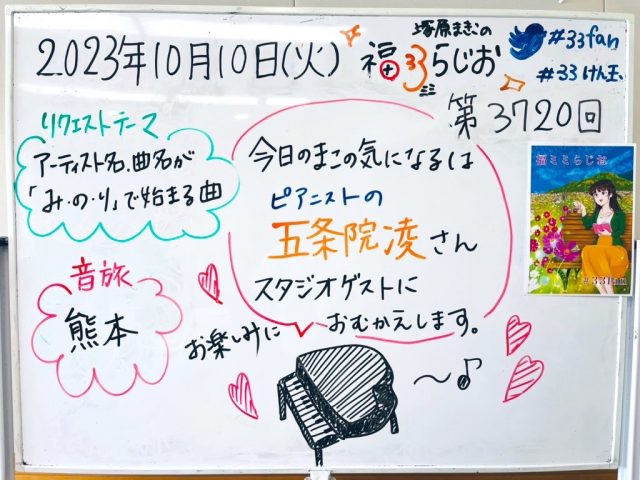 2023年10月10日(火)
塚原まきこの
福33らじお
#33fan
#33けん玉
第3720回
リクエストテーマ
アーティスト名、曲名が
「み・の・り」で始まる曲
今日のまこの気になるは
ピアニストの
五条院凌さん
スタジオゲストに
おむかえします。
お楽しみに
音旅
熊本
福ミミらじお
#33fan